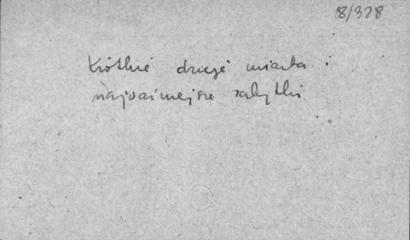 8/328
Krótkie dzieje miasta i
najważniejsze zabytki